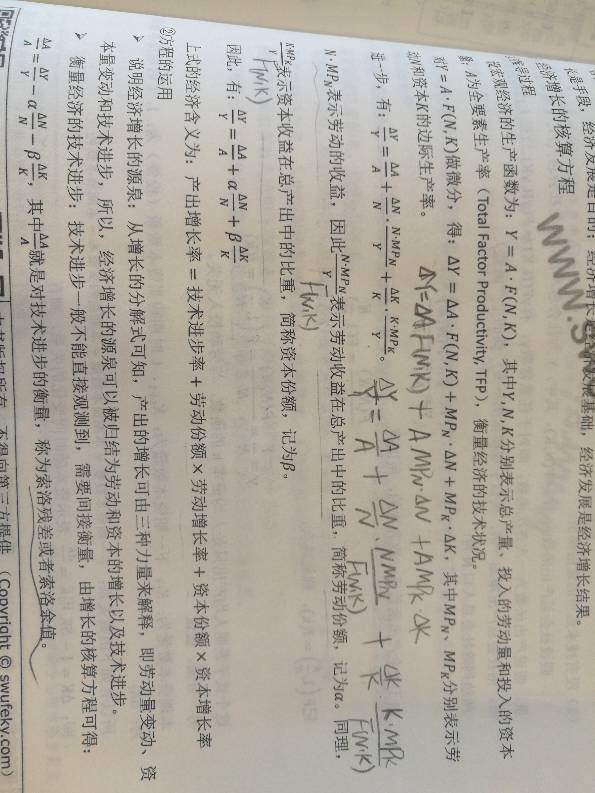 是手段，经济发展是目的；经济增长是经济发展基础，经济发展是经济增长结果。
经济增长的核算方程
WWW.S
推导过程
设实现经济的生产函数为：Y = A · F(N, K)，其中Y,N,K分别表示总产量、投入的劳动量和投入的资本
量，A为全要素生产率（Total Factor Productivity, TFP），衡量经济的技术状况。
对Y = A · F(N,K)做微分，得：ΔY = ΔA · F(N,K) + MPN · ΔN + MPK · ΔK，其中MPN、MPK分别表示劳
动N和资本K的边际生产率。
ΔY=ΔAF(N,K) + AMPN·ΔN + AMPK·ΔK
进一步，有：ΔY/Y = ΔA/A + ΔN/N · N·MPN/Y + ΔK/K · K·MPK/Y。
ΔY/Y = ΔA/A + ΔN/N · NMPN/F(N,K) + ΔK/K · K·MPK/F(N,K)
N · MPN表示劳动的收益，因此N·MPN/Y表示劳动收益在总产出中的比重，简称劳动份额，记为α。同理，
F(N,K)
K·MPK/Y表示资本收益在总产出中的比重，简称资本份额，记为β。
F(N,K)
因此，有：ΔY/Y = ΔA/A + αΔN/N + βΔK/K
上式的经济含义为：产出增长率 = 技术进步率 + 劳动份额 × 劳动增长率 + 资本份额 × 资本增长率
②方程的运用
➢ 说明经济增长的源泉：从增长的分解式可知，产出的增长可由三种力量来解释，即劳动量变动、资
本量变动和技术进步，所以，经济增长的源泉可以被归结为劳动和资本的增长以及技术进步。
➢ 衡量经济的技术进步：技术进步一般不能直接观测到，需要间接衡量，由增长的核算方程可得：
ΔA/A = ΔY/Y − αΔN/N − βΔK/K，其中ΔA/A就是对技术进步的衡量，称为索洛残差或者索洛余值。
版权所有，不得向第三方提供 (Copyright © swufeky.com)